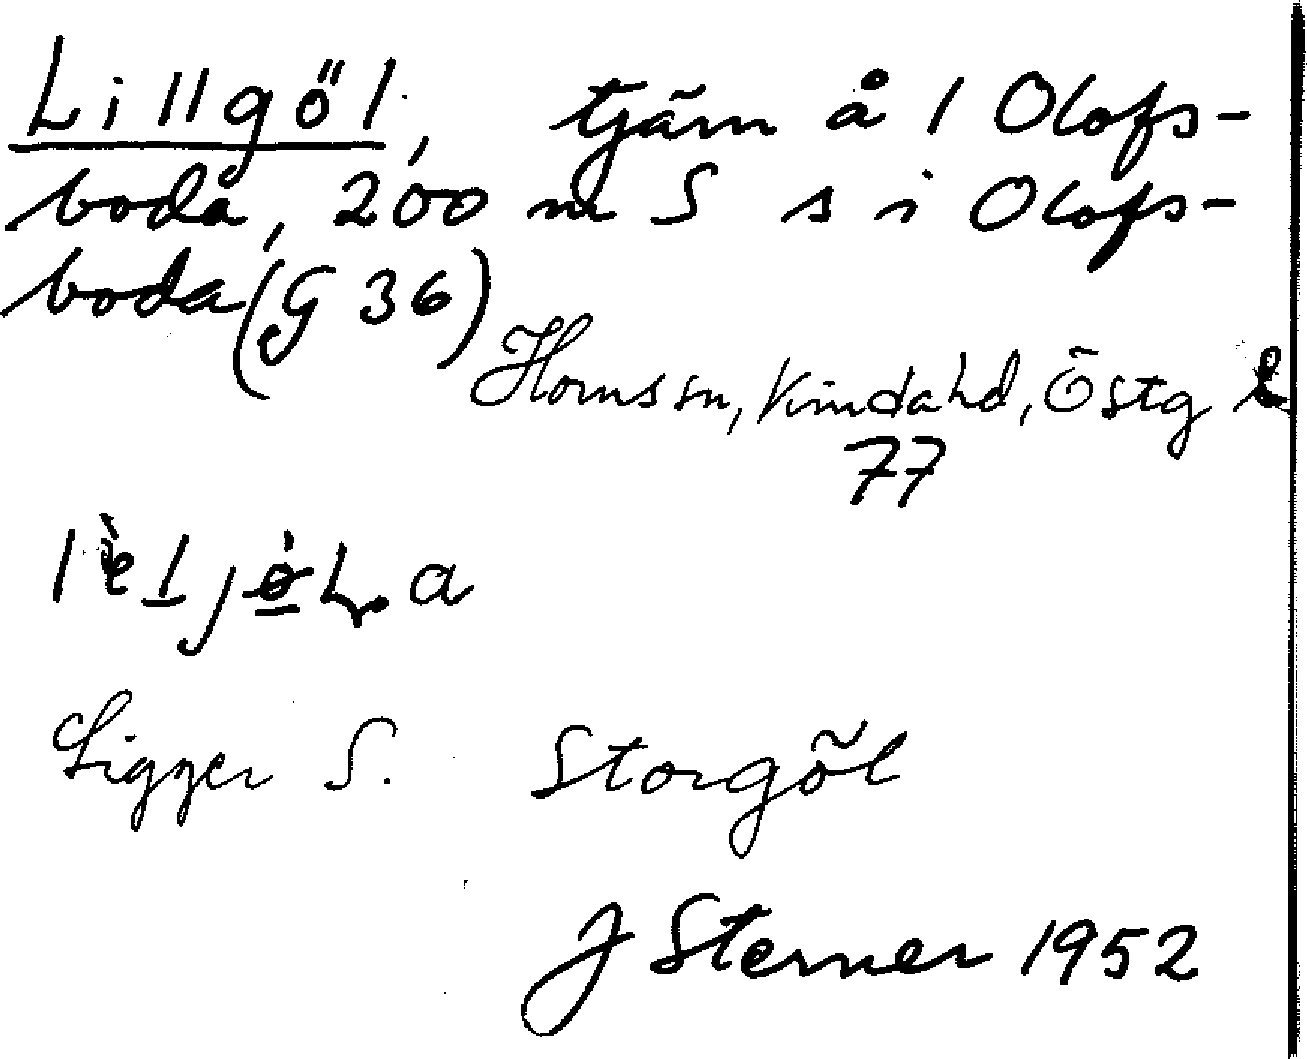 Lillgöl, tjärn å 1 Olofs-
boda, 200 m S s i Olofs-
boda (G 36)
Horns sn, Kinda hd, Östg l
77
Ligger S. Storgöl
J Sterner 1952